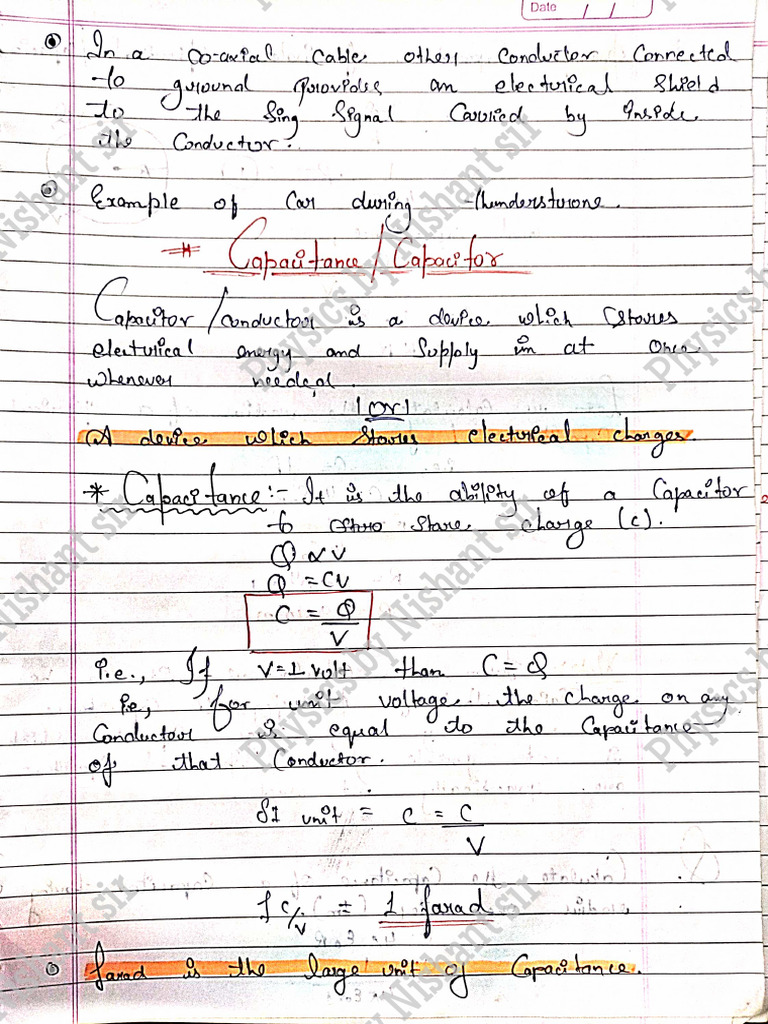 Date / /
In a co-axial cable other conductor connected
to ground provides an electrical shield
to the sing signal carried by inside
the conductor.
Example of car during thunderstrone.
* Capacitance / Capacitor
Capacitor / conductor is a device which stores
electrical energy and supply in at once
whenever needed.
|or|
A device which stores electrical charges.
* Capacitance :- It is the ability of a capacitor
to stro store charge (c).
Q ∝ V
Q = CV
C = Q
V
i.e., If V=1 volt than C = Q
i.e., for unit voltage the charge on any
conductor is equal to the capacitance
of that conductor.
SI unit = C = C
V
1 C/V = 1 farad
farad is the large unit of capacitance.
Physics by Nishant sir